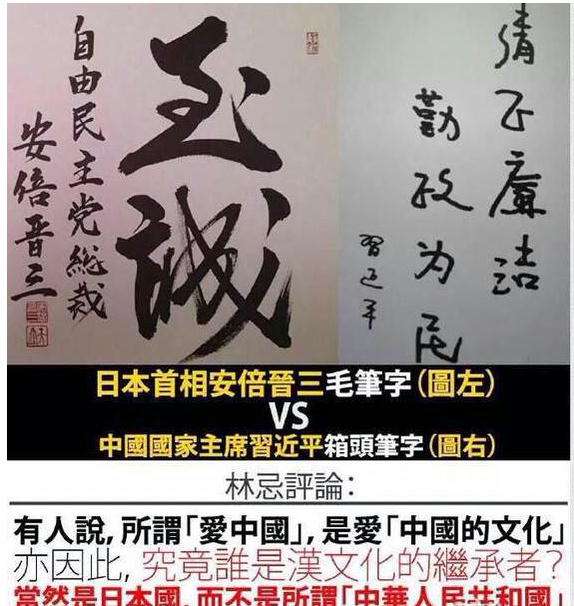 至誠
自由民主党総裁
安倍晋三
清正廉洁
勤政为民
習近平
日本首相安倍晉三毛筆字(圖左)
VS
中國國家主席習近平箱頭筆字(圖右)
林忌評論:
有人說,所謂「愛中國」,是愛「中國的文化」
亦因此,究竟誰是漢文化的繼承者?
當然是日本國,而不是所謂「中華人民共和國」